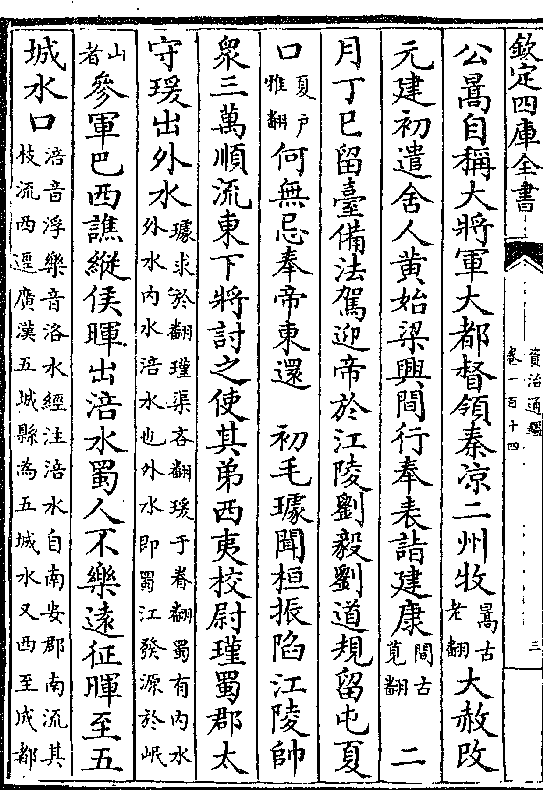 欽定四庫全書
資治通鑑
卷一百十四
三
公暠自稱大將軍大都督領秦凉二州牧暠古老翻大赦改
元建初遣舍人黄始梁興間行奉表詣建康間古莧翻二
月丁巳留臺備法駕迎帝於江陵劉毅劉道規留屯夏
口夏户雅翻何無忌奉帝東還　初毛璩聞桓振陷江陵帥
衆三萬順流東下將討之使其弟西夷校尉瑾蜀郡太
守瑗出外水璩求於翻瑾渠吝翻瑗于眷翻蜀有内水外水内水涪水也外水即蜀江發源於岷
山者參軍巴西譙縱侯暉出涪水蜀人不樂遠征暉至五
城水口涪音浮樂音洛水經注涪水自南安郡南流其枝流西逕廣漢五城縣為五城水又西至成都